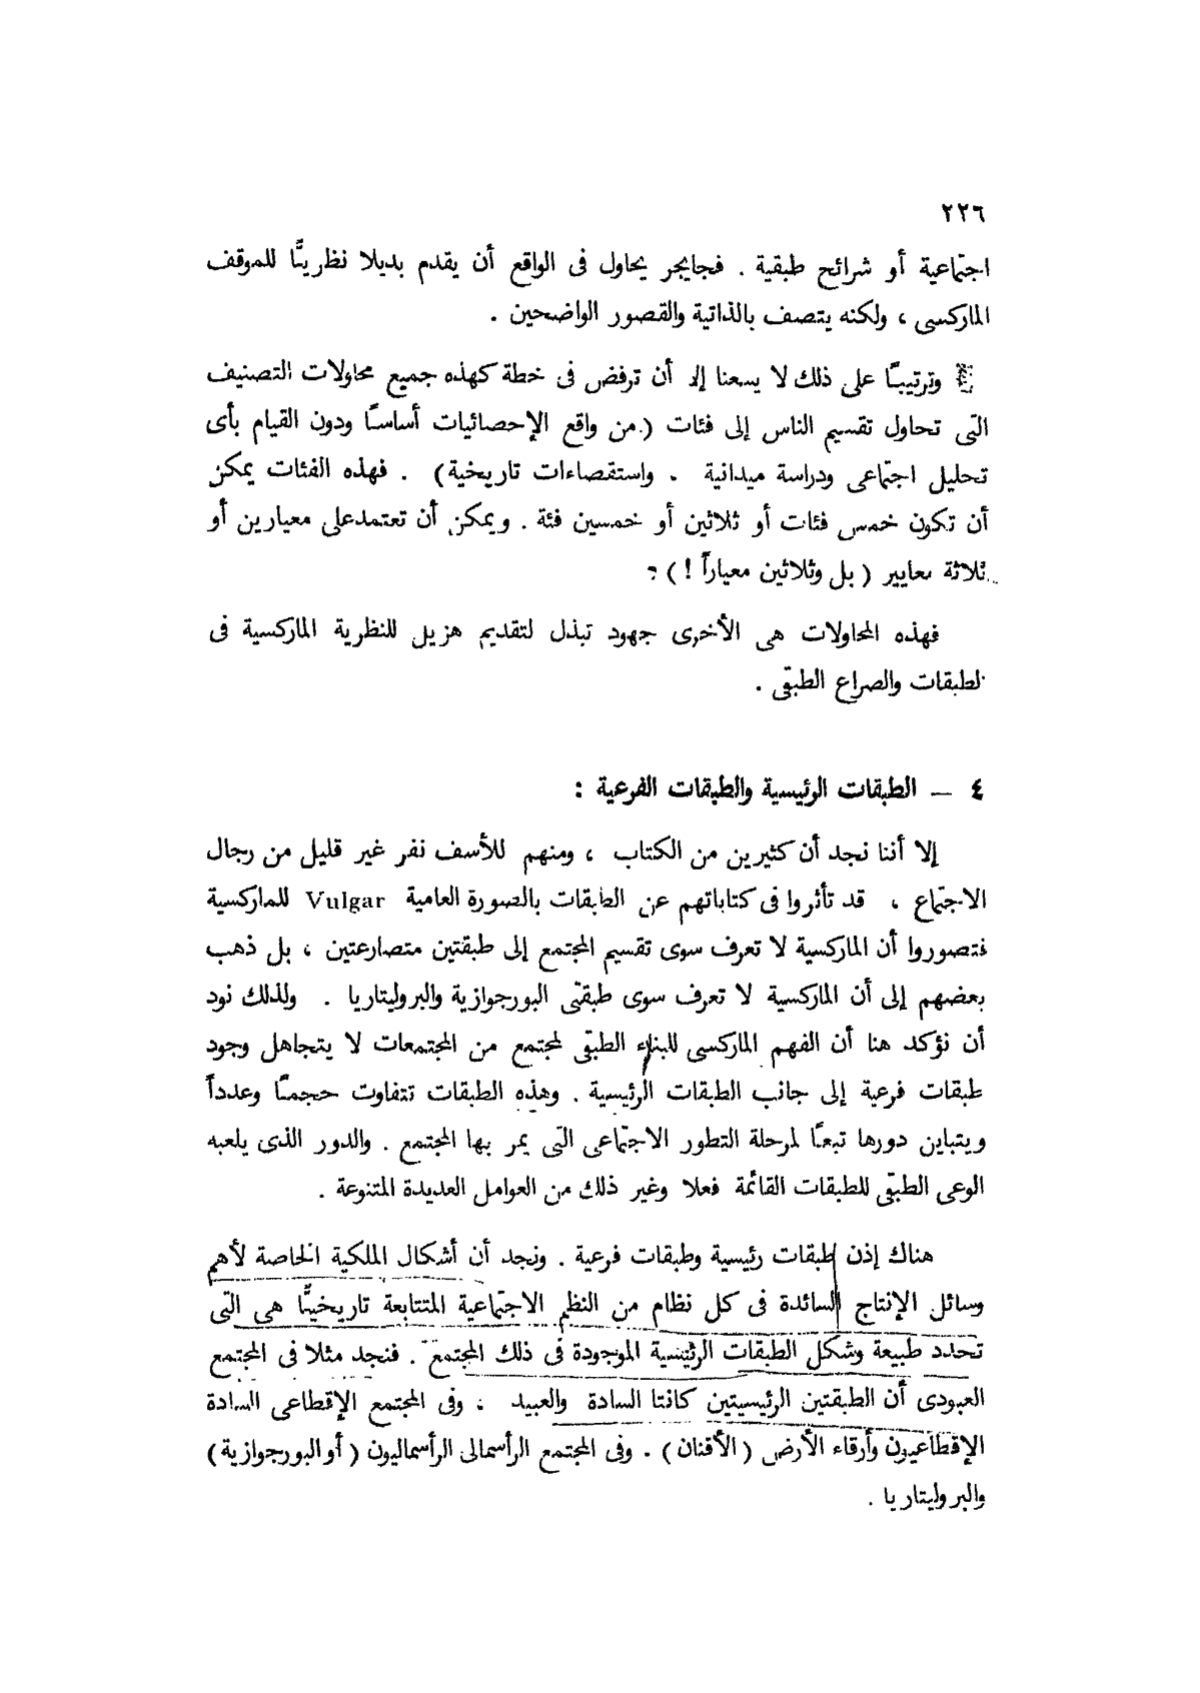 ٢٢٦
اجتماعية أو شرائح طبقية . فجايجر يحاول فى الواقع أن يقدم بديلا نظريًّا للموقف
الماركسى ، ولكنه يتصف بالذاتية والقصور الواضحين .
وترتيبًا على ذلك لا يسعنا إلا أن ترفض فى خطة كهذه جميع محاولات التصنيف
التى تحاول تقسيم الناس إلى فئات ( من واقع الإحصائيات أساسًا ودون القيام بأى
تحليل اجتماعى ودراسة ميدانية . واستقصاءات تاريخية) . فهذه الفئات يمكن
أن تكون خمس فئات أو ثلاثين أو خمسين فئة . ويمكن أن تعتمدعلى معيارين أو
ثلاثة معايير ( بل وثلاثين معياراً ! ) .
فهذه المحاولات هى الأخرى جهود تبذل لتقديم هزيل للنظرية الماركسية فى
لطبقات والصراع الطبقى .
٤ – الطبقات الرئيسية والطبقات الفرعية :
إلا أننا نجد أن كثيرين من الكتاب ، ومنهم للأسف نفر غير قليل من رجال
الاجتماع ، قد تأثروا فى كتاباتهم عن الطبقات بالصورة العامية Vulgar للماركسية
فتصوروا أن الماركسية لا تعرف سوى تقسيم المجتمع إلى طبقتين متصارعتين ، بل ذهب
بعضهم إلى أن الماركسية لا تعرف سوى طبقتى البورجوازية والبروليتاريا . ولذلك نود
أن نؤكد هنا أن الفهم الماركسى للبناء الطبقى لمجتمع من المجتمعات لا يتجاهل وجود
طبقات فرعية إلى جانب الطبقات الرئيسية . وهذه الطبقات تتفاوت حجمًا وعدداً
ويتباين دورها تبعًا لمرحلة التطور الاجتماعى التى يمر بها المجتمع . والدور الذى يلعبه
الوعى الطبقى للطبقات القائمة فعلا وغير ذلك من العوامل العديدة المتنوعة .
هناك إذن طبقات رئيسية وطبقات فرعية . ونجد أن أشكال الملكية الخاصة لأهم
وسائل الإنتاج السائدة فى كل نظام من النظم الاجتماعية المتتابعة تاريخيًّا هى التى
تحدد طبيعة وشكل الطبقات الرئيسية الموجودة فى ذلك المجتمع . فنجد مثلا فى المجتمع
العبودى أن الطبقتين الرئيسيتين كانتا السادة والعبيد ، وفى المجتمع الإقطاعى السادة
الإقطاعيون وأرقاء الأرض ( الأقنان ) . وفى المجتمع الرأسمالى الرأسماليون ( أو البورجوازية )
والبروليتاريا .